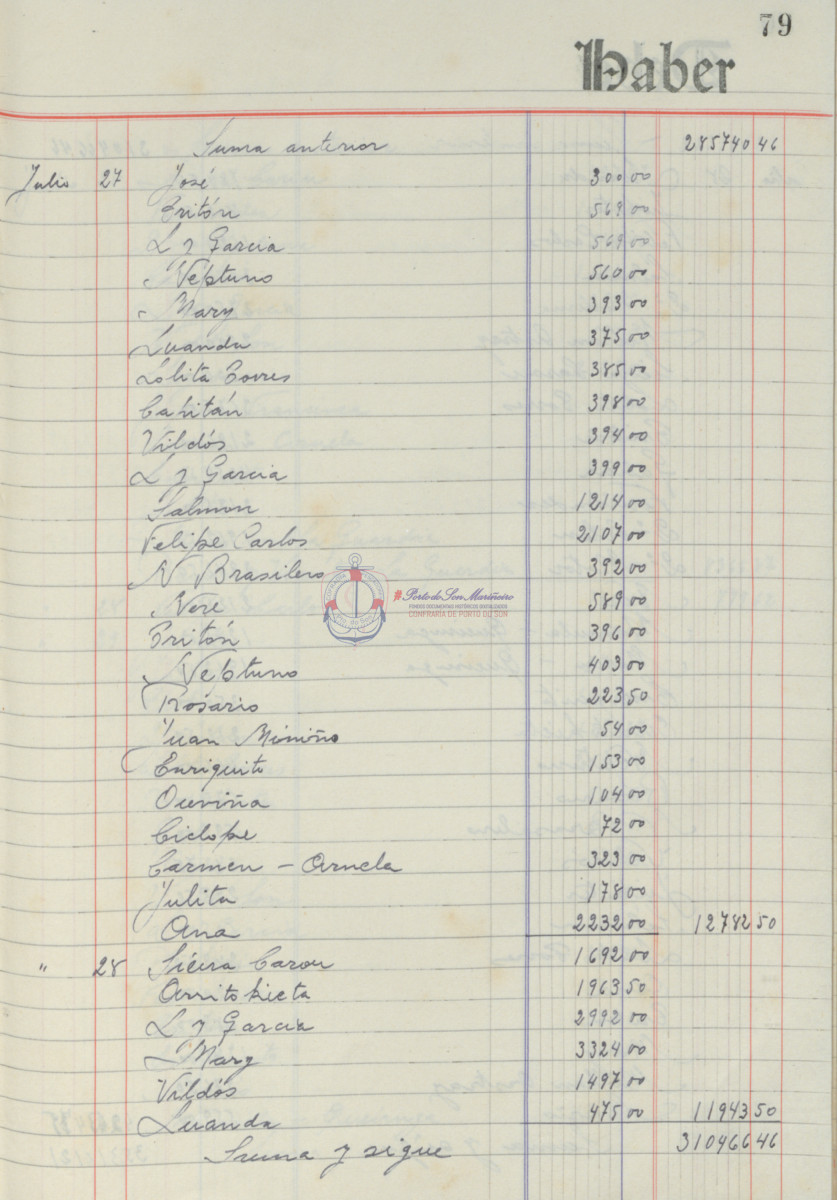 79
Haber
Suma anterior 285740 46
Julio 27 José 300 00
Tritón 569 00
L y Garcia 569 00
Neptuno 560 00
Mary 393 00
Luanda 375 00
Lolita Torres 385 00
Capitán 398 00
Vildós 394 00
L y Garcia 399 00
Salmon 1214 00
Felipe Carlos 2107 00
N Brasilero 392 00
Nere 589 00
Tritón 396 00
Neptuno 403 00
Rosario 223 50
Juan Miniño 54 00
Enriquito 153 00
Ouviña 104 00
Ciclope 72 00
Carmen - Arnela 323 00
Julita 178 00
Ana 2232 00 12782 50
" 28 Sieira Carou 1692 00
Arritokieta 1963 50
L y Garcia 2992 00
Mary 3324 00
Vildós 1497 00
Luanda 475 00 11943 50
Suma y sigue 310466 46
#Porto do Son Mariñeiro
FONDOS DOCUMENTAIS HISTÓRICOS DIGITALIZADOS
CONFRARIA DE PORTO DO SON